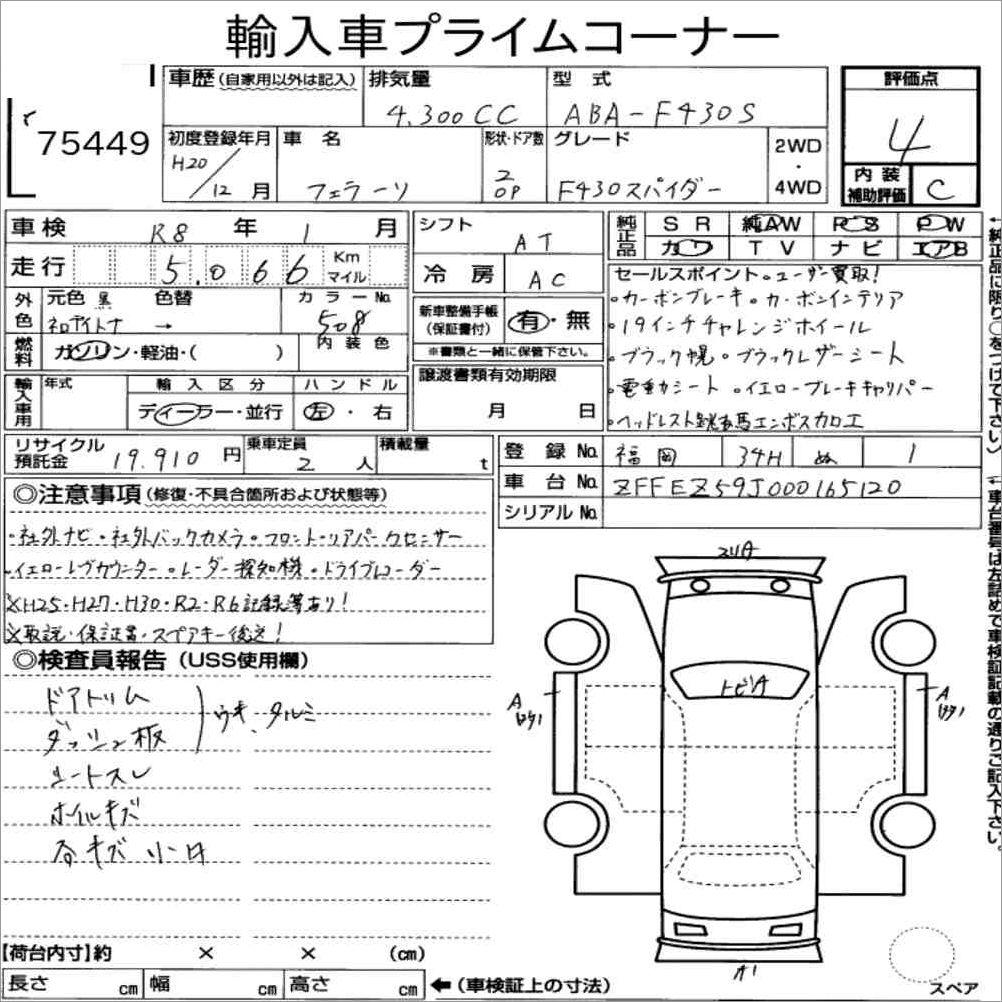 輸入車プライムコーナー
75449
車歴 (自家用以外は記入) 排気量 型式 評価点
4.300CC ABA-F430S 4
初度登録年月 車名 形状・ドア数 グレード 2WD・4WD
H20/12月 フェラーリ 2 OP F430スパイダー
内装補助評価 C
車検 R8年 1月 シフト AT
純正品 SR 純AW PS PW
カワ TV ナビ エアB
走行 5.066 Km マイル 冷房 AC
外色 元色 黒 色替 カラーNo. 508
ネロデイトナ →
内装色
燃料 ガソリン・軽油・( )
新車整備手帳(保証書付) 有・無
※書類と一緒に保管下さい。
セールスポイント。ユーザー買取!
。カーボンブレーキ。カーボンインテリア
。19インチチャレンジホイール
。ブラック幌。ブラックレザーシート
。電動シート。イエローブレーキキャリパー
輸入車用 年式 輸入区分 ハンドル
ディーラー・並行 左・右
譲渡書類有効期限
月 日
リサイクル預託金 19.910円 乗車定員 2人 積載量 t
登録No. 福岡 34H ぬ 1
車台No. ZFFEZ59J000165120
シリアルNo.
◎注意事項 (修復・不具合箇所および状態等)
・社外ナビ。社外バックカメラ。フロント・リアパークセンサー
・イエローレヴカウンター。レーダー探知機。ドライブレコーダー
※H25・H27・H30・R2・R6記録簿あり!
※取説・保証書・スペアキー後送!
◎検査員報告 (USS使用欄)
ドアトリム
ダッシュ板
ウキ、タルミ
シートスレ
ホイルキズ
各キズ
スリA
トビA
A
A
スペア
【荷台内寸】約 × × (cm)
長さ cm 幅 cm 高さ cm ←(車検証上の寸法)
←純正品に限り○をつけて下さい〉
←車台番号は左詰めで車検証記載の通りご記入下さい。